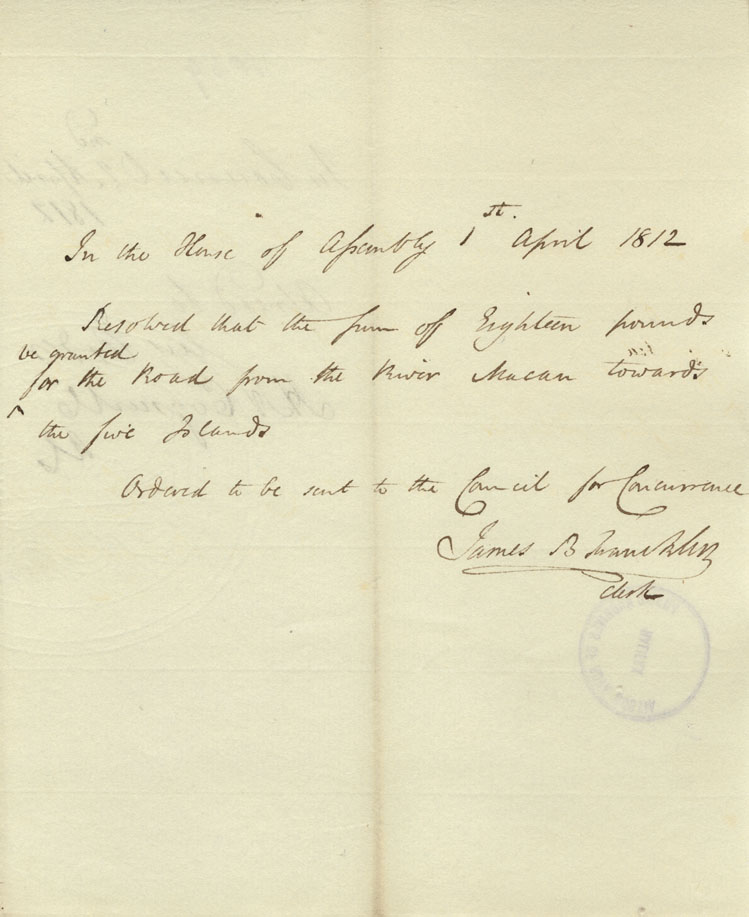 In the House of Assembly 1st. April 1812
Resolved that the sum of Eighteen pounds
be granted
for the Road from the River Macan towards
^
the five Islands
Ordered to be sent to the Council for Concurrence
James B Francklin
Clerk